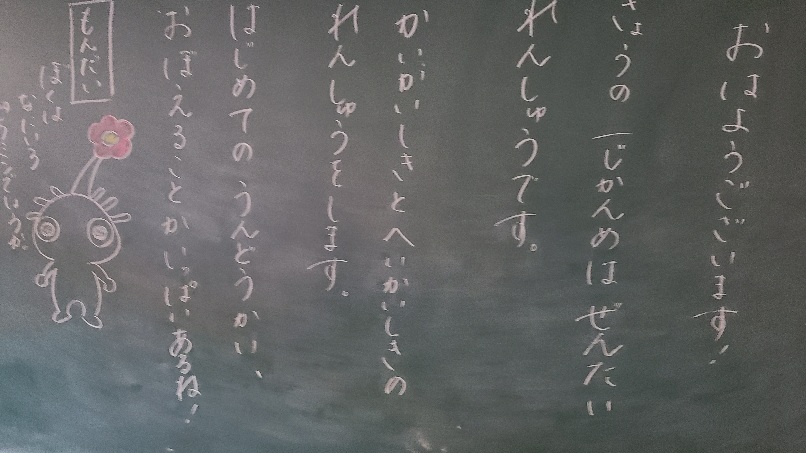 おはようございます!
きょうの 一じかんめは ぜんたい
れんしゅうです。
かいかいしきとへいかいしきの
れんしゅうをします。
はじめての うんどうかい、
おぼえることが いっぱいあるね!
もんだい
ぼくは
なにいろ